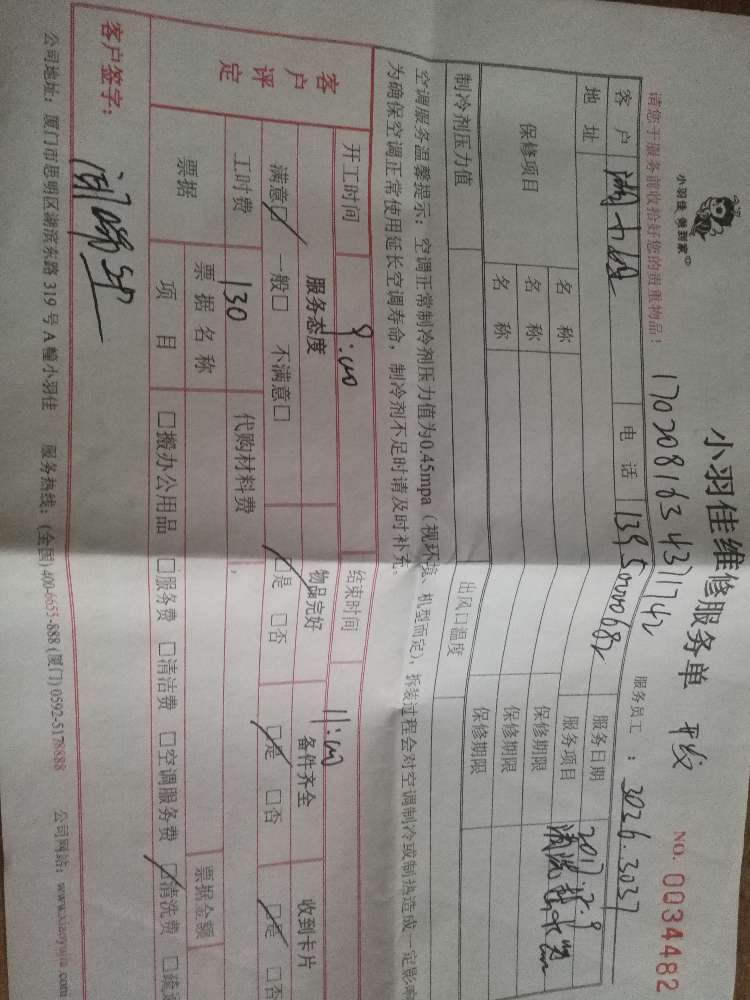 小羽佳 做到家
小羽佳维修服务单 开发
NO. 0034482
请您于服务前收拾好您的贵重物品！
17020816343711742
服务员工：3026.3037
客户
电话
服务日期 2017.2.9
地址
服务项目 清洗
保修项目
名称
保修期限
名称
保修期限
名称
保修期限
制冷剂压力值
出风口温度
空调服务温馨提示：空调正常制冷剂压力值为0.45mpa（视环境、机型而定），拆装过程会对空调制冷或制热造成一定影响
为确保空调正常使用延长空调寿命，制冷剂不足时请及时补充。
开工时间 9:00 结束时间 11:00
客户评定
服务态度 物品完好 备件齐全 收到卡片
满意☑ 一般□ 不满意□ ☑是 □否 ☑是 □否 ☑是 □否
工时费 130 代购材料费
票据 票据名称 票据金额
项目 □搬办公用品 □服务费 □清洁费 □空调服务费 ☑清洗费
客户签字：
公司地址：厦门市思明区湖滨东路319号A幢小羽佳 服务热线：(全国)400-6655-888 (厦门)0592-5178888 公司网站：www.xiaoyujia.com